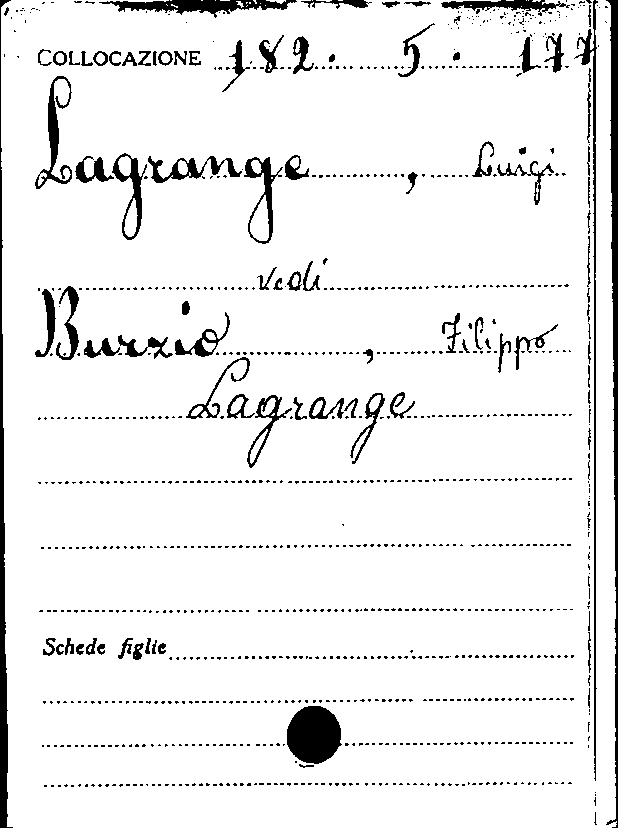 COLLOCAZIONE 182. 5. 177
Lagrange, Luigi
vedi
Burzio, Filippo
Lagrange
Schede figlie